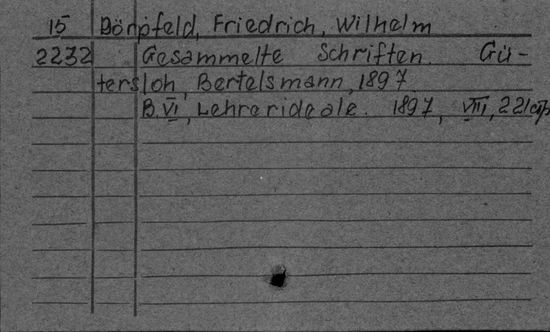 15 Dörpfeld, Friedrich, Wilhelm
2232 Gesammelte Schriften. Gü-
tersloh, Bertelsmann, 1897
B. VI, Lehrerideale. 1897, VIII, 221 стр